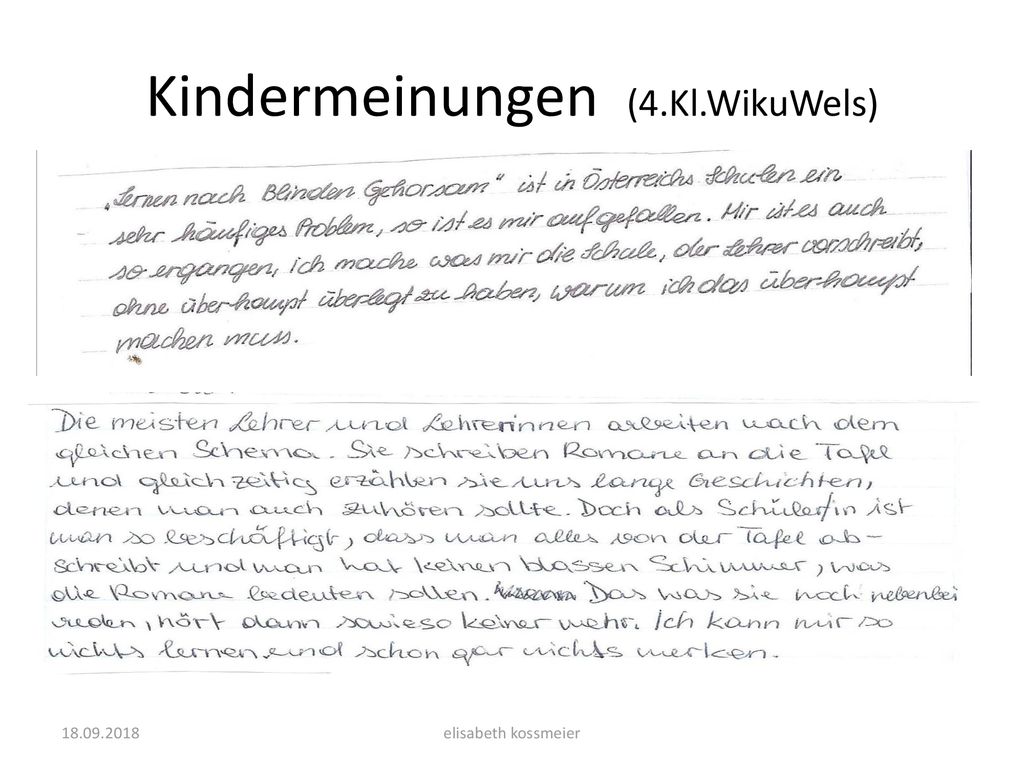 Kindermeinungen (4.Kl.WikuWels)
„Lernen nach Blinden Gehorsam“ ist in Österreichs Schulen ein
sehr häufiges Problem, so ist es mir aufgefallen. Mir ist es auch
so ergangen, ich mache was mir die Schule, der Lehrer vorschreibt,
ohne überhaupt überlegt zu haben, warum ich das überhaupt
machen muss.
Die meisten Lehrer und Lehrerinnen arbeiten nach dem
gleichen Schema. Sie schreiben Romane an die Tafel
und gleichzeitig erzählen sie uns lange Geschichten,
denen man auch zuhören sollte. Doch als Schüler/in ist
man so beschäftigt, dass man alles von der Tafel ab-
schreibt und man hat keinen blassen Schimmer, was
die Romane bedeuten sollen. Das was sie noch nebenbei
reden, hört dann sowieso keiner mehr. Ich kann mir so
nichts lernen und schon gar nichts merken.
18.09.2018
elisabeth kossmeier